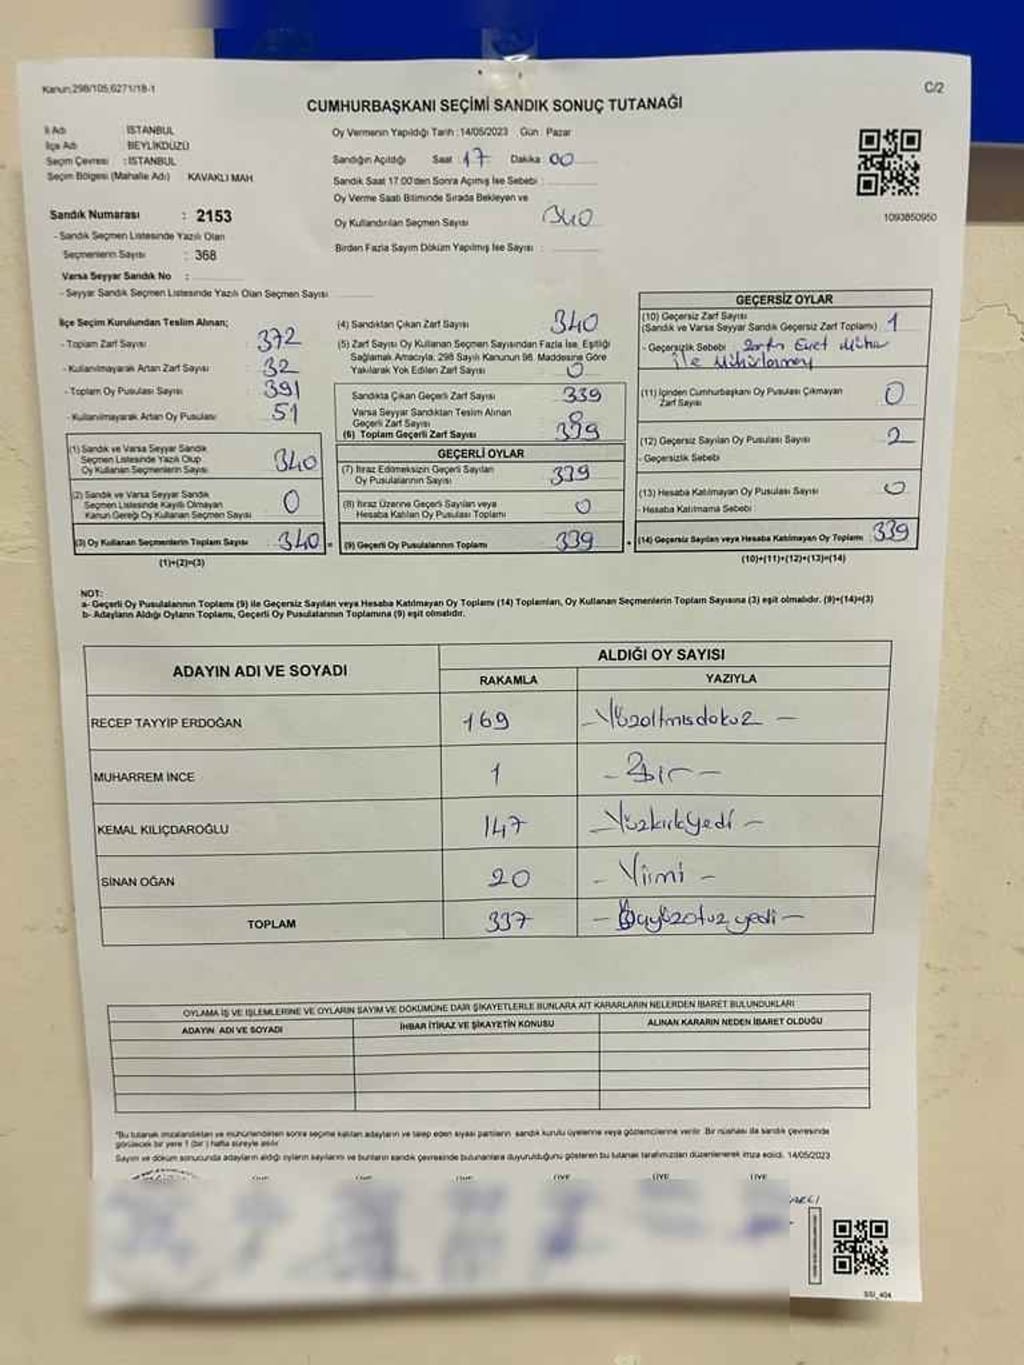 Kanun;298/105,6271/18-1
C/2
CUMHURBAŞKANI SEÇİMİ SANDIK SONUÇ TUTANAĞI
İl Adı İSTANBUL
İlçe Adı BEYLİKDÜZÜ
Seçim Çevresi : İSTANBUL
Seçim Bölgesi (Mahalle Adı) KAVAKLI MAH
Oy Vermenin Yapıldığı Tarih : 14/05/2023 Gün : Pazar
Sandığın Açıldığı Saat : 17 Dakika : 00
Sandık Saat 17:00'den Sonra Açımış İse Sebebi :
Oy Verme Saati Bitiminde Sırada Bekleyen ve
Oy Kullandırılan Seçmen Sayısı 340
Birden Fazla Sayım Döküm Yapılmış İse Sayısı :
1093850950
Sandık Numarası : 2153
- Sandık Seçmen Listesinde Yazılı Olan
Seçmenlerin Sayısı : 368
Varsa Seyyar Sandık No :
- Seyyar Sandık Seçmen Listesinde Yazılı Olan Seçmen Sayısı
İlçe Seçim Kurulundan Teslim Alınan;
- Toplam Zarf Sayısı : 372
- Kullanılmayarak Artan Zarf Sayısı : 32
- Toplam Oy Pusulası Sayısı : 391
- Kullanılmayarak Artan Oy Pusulası : 51
(1) Sandık ve Varsa Seyyar Sandık
Seçmen Listesinde Yazılı Olup
Oy Kullanan Seçmenlerin Sayısı : 340
(2) Sandık ve Varsa Seyyar Sandık
Seçmen Listesinde Kayıtlı Olmayan
Kanun Gereği Oy Kullanan Seçmen Sayısı : 0
(3) Oy Kullanan Seçmenlerin Toplam Sayısı : 340 =
(1)+(2)=(3)
(4) Sandıktan Çıkan Zarf Sayısı 340
(5) Zarf Sayısı Oy Kullanan Seçmen Sayısından Fazla İse, Eşitliği
Sağlamak Amacıyla; 298 Sayılı Kanunun 98. Maddesine Göre
Yakılarak Yok Edilen Zarf Sayısı 0
Sandıkta Çıkan Geçerli Zarf Sayısı 339
Varsa Seyyar Sandıktan Teslim Alınan
Geçerli Zarf Sayısı 0
(6) Toplam Geçerli Zarf Sayısı 339
GEÇERLİ OYLAR
(7) İtiraz Edilmeksizin Geçerli Sayılan
Oy Pusulalarının Sayısı : 339
(8) İtiraz Üzerine Geçerli Sayılan veya
Hesaba Katılan Oy Pusulası Toplamı : 0
(9) Geçerli Oy Pusulalarının Toplamı : 339 +
GEÇERSİZ OYLAR
(10) Geçersiz Zarf Sayısı
(Sandık ve Varsa Seyyar Sandık Geçersiz Zarf Toplamı) : 1
- Geçersizlik Sebebi : Evet
ile
(11) İçinden Cumhurbaşkanı Oy Pusulası Çıkmayan
Zarf Sayısı : 0
(12) Geçersiz Sayılan Oy Pusulası Sayısı : 2
- Geçersizlik Sebebi
(13) Hesaba Katılmayan Oy Pusulası Sayısı : 0
- Hesaba Katılmama Sebebi :
(14) Geçersiz Sayılan veya Hesaba Katılmayan Oy Toplamı : 339
(10)+(11)+(12)+(13)=(14)
NOT:
a- Geçerli Oy Pusulalarının Toplamı (9) ile Geçersiz Sayılan veya Hesaba Katılmayan Oy Toplamı (14) Toplamları, Oy Kullanan Seçmenlerin Toplam Sayısına (3) eşit olmalıdır. (9)+(14)=(3)
b- Adayların Aldığı Oyların Toplamı, Geçerli Oy Pusulalarının Toplamına (9) eşit olmalıdır.
ADAYIN ADI VE SOYADI
ALDIĞI OY SAYISI
RAKAMLA YAZIYLA
RECEP TAYYİP ERDOĞAN 169 - Yüzaltmışdokuz -
MUHARREM İNCE 1 - Bir -
KEMAL KILIÇDAROĞLU 147 - Yüzkırkyedi -
SİNAN OĞAN 20 - Yirmi -
TOPLAM 337 - Üçyüzotuzyedi -
OYLAMA İŞ VE İŞLEMLERİNE VE OYLARIN SAYIM VE DÖKÜMÜNE DAİR ŞİKAYETLERLE BUNLARA AİT KARARLARIN NELERDEN İBARET BULUNDUKLARI
ADAYIN ADI VE SOYADI İHBAR İTİRAZ VE ŞİKAYETİN KONUSU ALINAN KARARIN NEDEN İBARET OLDUĞU
*Bu tutanak imzalandıktan ve mühürlendikten sonra seçime katılan adayların ve talep eden siyasi partilerin sandık kurulu üyelerine veya gözlemcilerine verilir. Bir nüshası da sandık çevresinde
görülecek bir yere 1 (bir) hafta süreyle asılır
Sayım ve döküm sonucunda adayların aldığı oyların sayılarını ve bunların sandık çevresinde bulunanlara duyurulduğunu gösteren bu tutanak tarafımızdan düzenlenerek imza edildi. 14/05/2023
ÜYE ÜYE ÜYE ÜYE ÜYE ÜYE
SSI_404